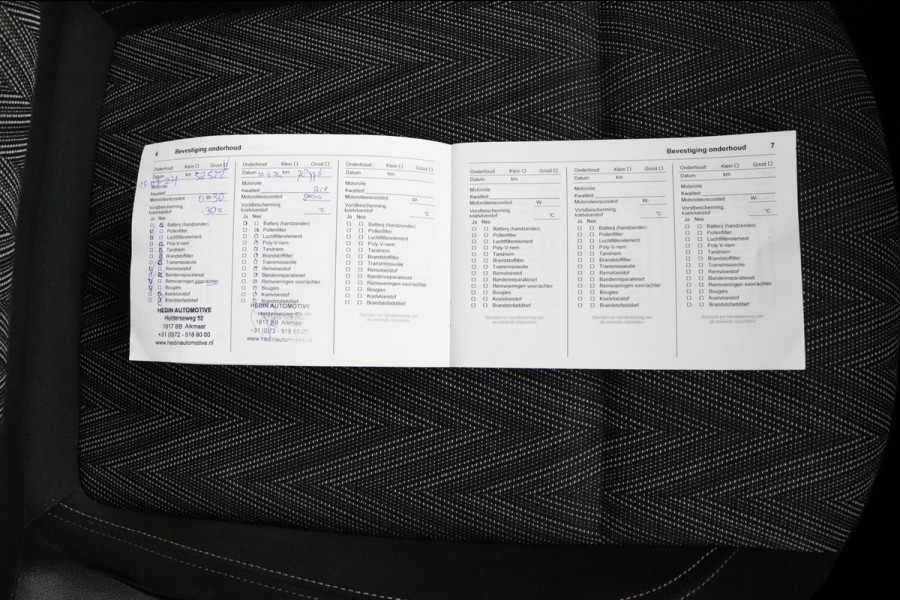 6 Bevestiging onderhoud
Onderhoud: Klein Groot
Datum km
Motorolie
Kwaliteit
Motorolieviscositeit 0W30
Vorstbescherming
koelvloestof -30°C
Ja Nee
Batterij (handzender)
Pollenfilter
Luchtfilterelement
Poly-V-riem
Tandriem
Brandstoffilter
Transmissieolie
Remvloestof
Bandenreparatieset
Remvoeringen voor/achter
Bougies
Koelvloestof
Brandstofadditief
HEDIN AUTOMOTIVE
Helderseweg 52
1817 BB Alkmaar
+31 (0)72 - 518 80 00
www.hedinautomotive.nl
Onderhoud: Klein Groot
Datum km
Motorolie
Kwaliteit
Motorolieviscositeit
Vorstbescherming
koelvloestof °C
Ja Nee
Batterij (handzender)
Pollenfilter
Luchtfilterelement
Poly-V-riem
Tandriem
Brandstoffilter
Transmissieolie
Remvloestof
Bandenreparatieset
Remvoeringen voor/achter
Bougies
Koelvloestof
Brandstofadditief
HEDIN AUTOMOTIVE
Helderseweg 52
1817 BB Alkmaar
+31 (0)72 - 518 80 00
www.hedinautomotive.nl
Onderhoud: Klein Groot
Datum km
Motorolie
Kwaliteit
Motorolieviscositeit W-
Vorstbescherming
koelvloestof °C
Ja Nee
Batterij (handzender)
Pollenfilter
Luchtfilterelement
Poly-V-riem
Tandriem
Brandstoffilter
Transmissieolie
Remvloestof
Bandenreparatieset
Remvoeringen voor/achter
Bougies
Koelvloestof
Brandstofadditief
Bevestiging onderhoud 7
Onderhoud: Klein Groot
Datum km
Motorolie
Kwaliteit
Motorolieviscositeit W-
Vorstbescherming
koelvloestof °C
Ja Nee
Batterij (handzender)
Pollenfilter
Luchtfilterelement
Poly-V-riem
Tandriem
Brandstoffilter
Transmissieolie
Remvloestof
Bandenreparatieset
Remvoeringen voor/achter
Bougies
Koelvloestof
Brandstofadditief
Onderhoud: Klein Groot
Datum km
Motorolie
Kwaliteit
Motorolieviscositeit W-
Vorstbescherming
koelvloestof °C
Ja Nee
Batterij (handzender)
Pollenfilter
Luchtfilterelement
Poly-V-riem
Tandriem
Brandstoffilter
Transmissieolie
Remvloestof
Bandenreparatieset
Remvoeringen voor/achter
Bougies
Koelvloestof
Brandstofadditief
Onderhoud: Klein Groot
Datum km
Motorolie
Kwaliteit
Motorolieviscositeit W-
Vorstbescherming
koelvloestof °C
Ja Nee
Batterij (handzender)
Pollenfilter
Luchtfilterelement
Poly-V-riem
Tandriem
Brandstoffilter
Transmissieolie
Remvloestof
Bandenreparatieset
Remvoeringen voor/achter
Bougies
Koelvloestof
Brandstofadditief